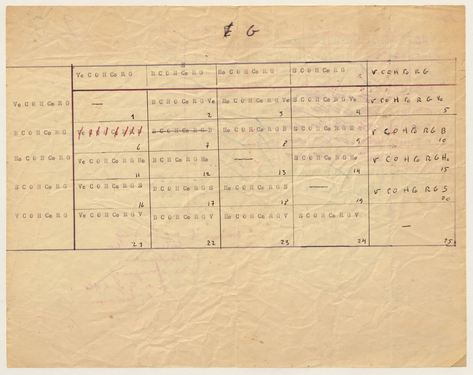 G
Ve C O H Ce R G B C O H Ce R G He C O H Ce R G S C O H Ce R G V C O H Ce R G
Ve C O H Ce R G — B C O H Ce R G Ve He C O H Ce R G Ve S C O H Ce R G Ve V C O H Ce R G Ve
1 2 3 4 5
B C O H Ce R G B C O H Ce R G He C O H Ce R G B S C O H Ce R G B V C O H Ce R G B
6 7 8 9 10
He C O H Ce R G Ve C O H Ce R G He B C O H Ce R G He — S C O H Ce R G He V C O H Ce R G He
11 12 13 14 15
S C O H Ce R G Ve C O H Ce R G S B C O H Ce R G S He C O H Ce R G S — V C O H Ce R G S
16 17 18 19 20
V C O H Ce R G Ve C O H Ce R G V B C O H Ce R G V He C O H Ce R G V S C O H Ce R G V —
21 22 23 24 25